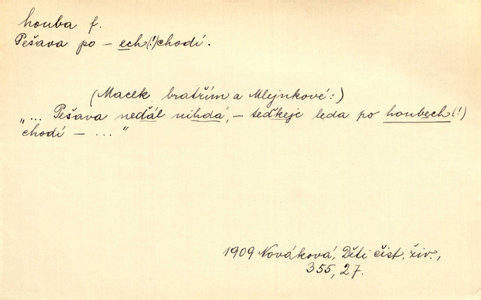 houba f.
Pešava po - ech(!) chodí.
(Macek bratřím a Mlejnkové:)
„... Pešava neďál nihdá, - teďkeje leda po houbech(!)
chodí - ..."
1909 Nováková, Děti čist. živ.,
355, 27.